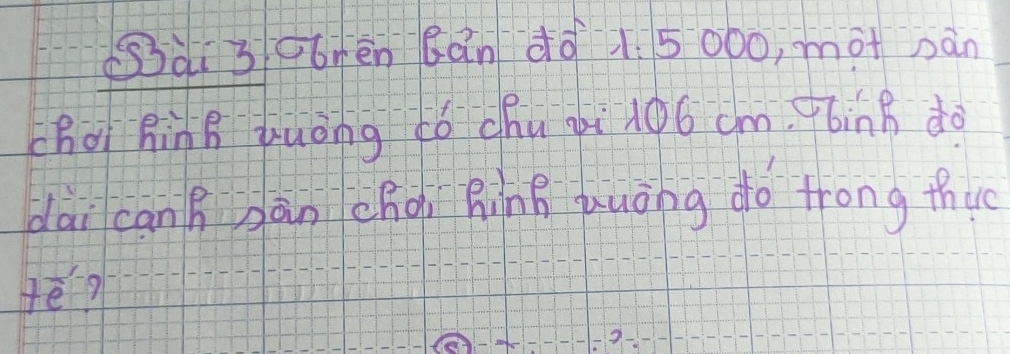 Bài 3, Trên bản đồ 1:5 000, một sân
chơi hình vuông có chu vi 106 cm. Tính độ
dài cạnh sân chơi hình vuông đó trong thực
tế?